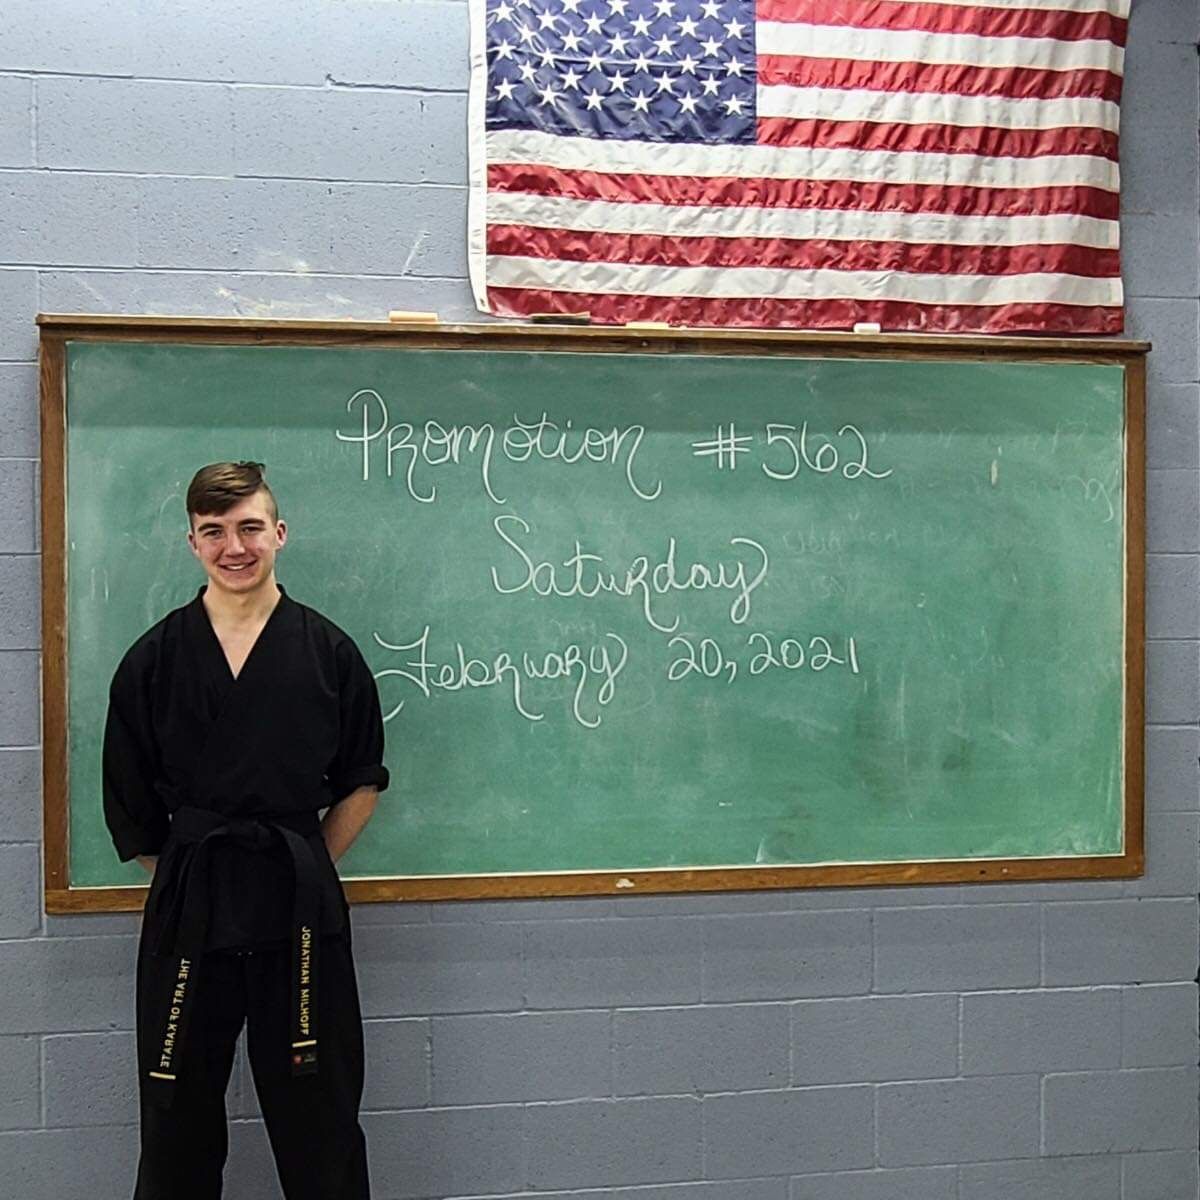 Promotion #562
Saturday
February 20, 2021
THE ART OF KARATE
JONATHAN MILHOFF